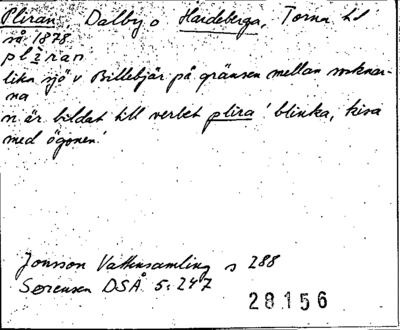 Pliran, Dalby o Hardeberga, Torna hd
så 1878
pližran
liten sjö v Billebjär på gränsen mellan socknar-
na
n är bildat till verbet plira 'blinka, kisa
med ögonen'
Jonsson Vattensamling s 288
Sørensen DSÅ 5:247
28156